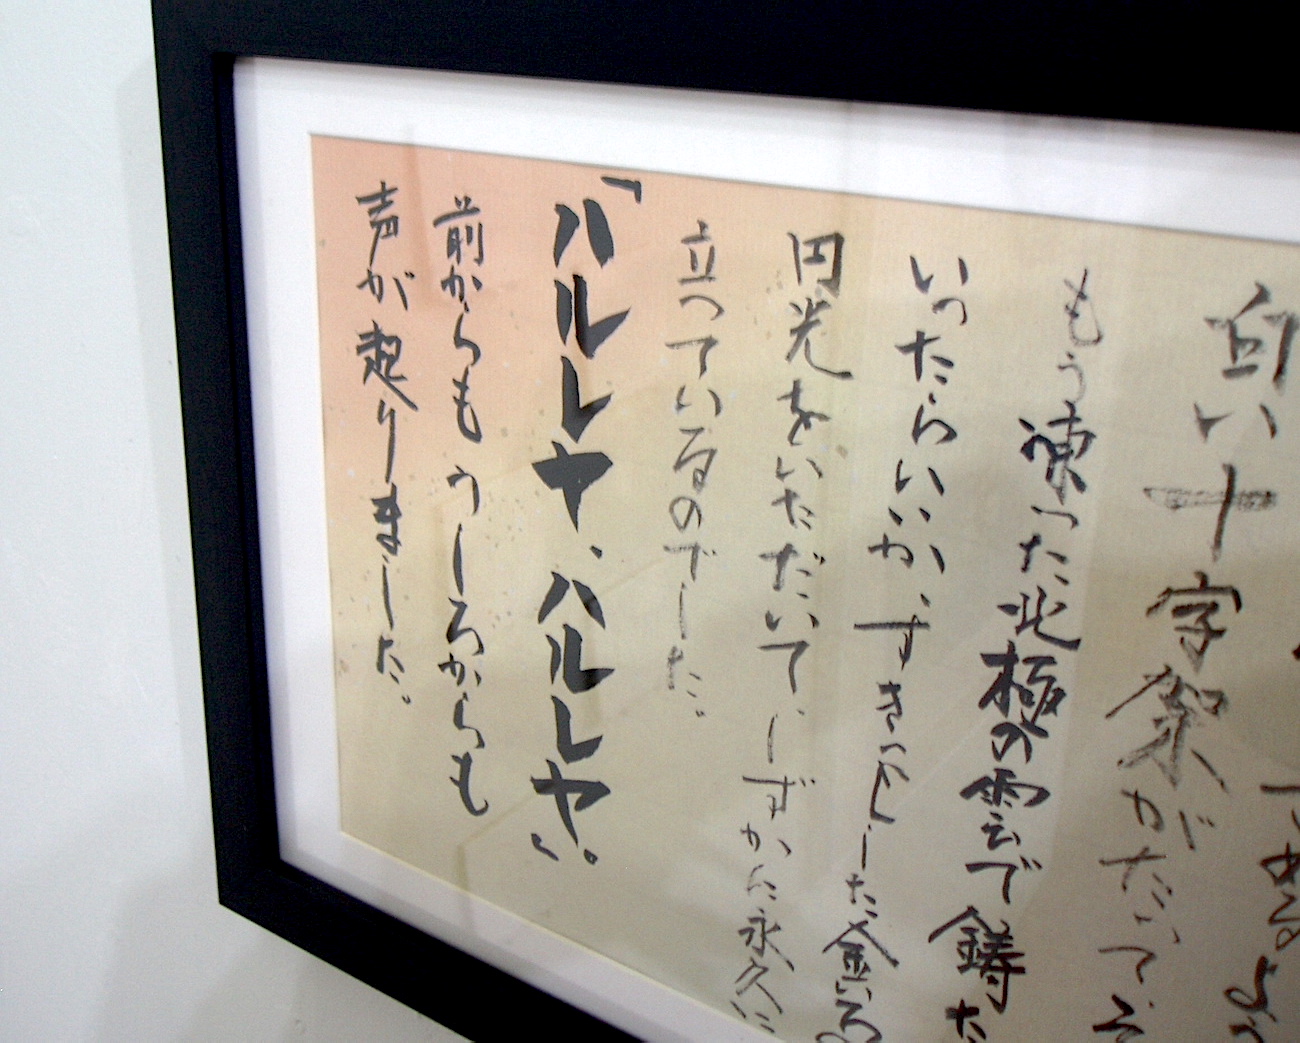 めるよ
白い十字架がたって、そ
もう凍った北極の雲で鋳た
いったらいいか、すきっとした金いろの
円光をいただいて、しずかに永久に
立っているのでした。
「ハルレヤ、ハルレヤ」。
前からもうしろからも
声が起りました。